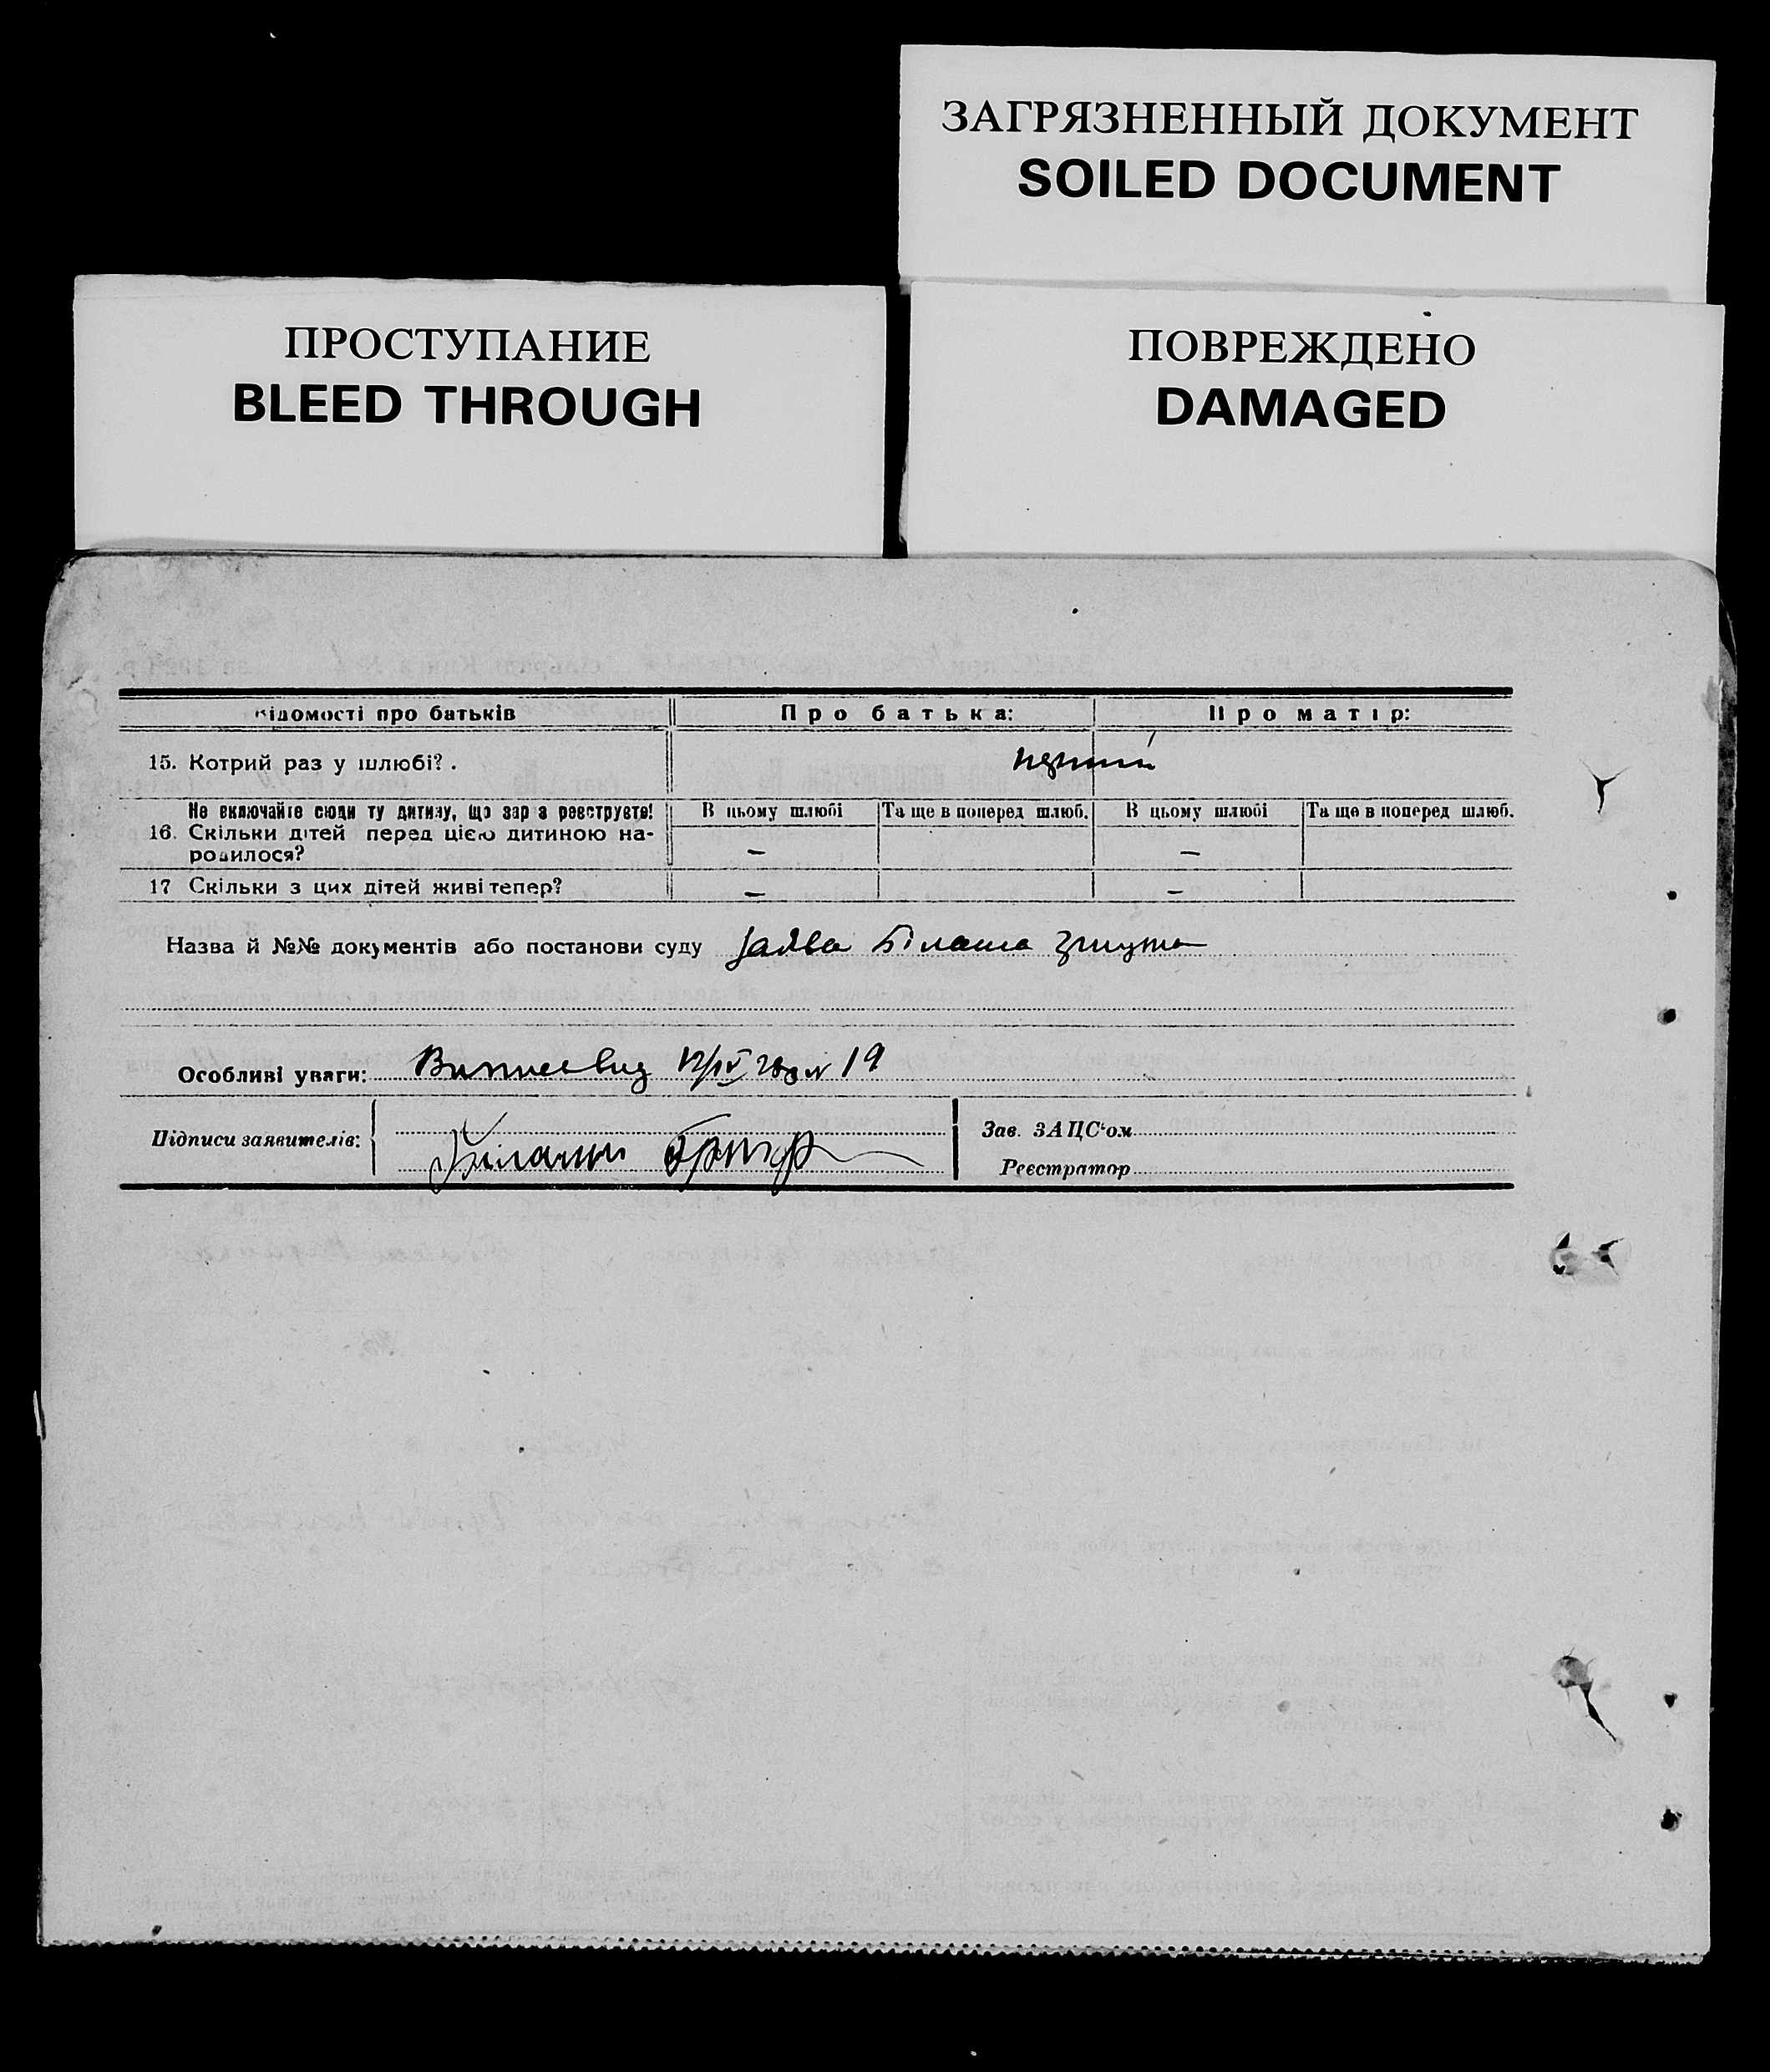 ЗАГРЯЗНЕННЫЙ ДОКУМЕНТ
SOILED DOCUMENT
ПРОСТУПАНИЕ
BLEED THROUGH
ПОВРЕЖДЕНО
DAMAGED
Відомості про батьків Про батька: Про матір:
15. Котрий раз у шлюбі? .
Не включайте сюди ту дитину, що зараз реєструєте! В цьому шлюбі Та ще в поперед шлюб. В цьому шлюбі Та ще в поперед шлюб.
16. Скільки дітей перед цією дитиною на-
родилося? — —
17 Скільки з цих дітей живі тепер? — —
Назва й №№ документів або постанови суду заява Білаша
Особливі уваги: 19
Підписи заявителів: Зав. ЗАЦС'ом
Білаш Реєстратор